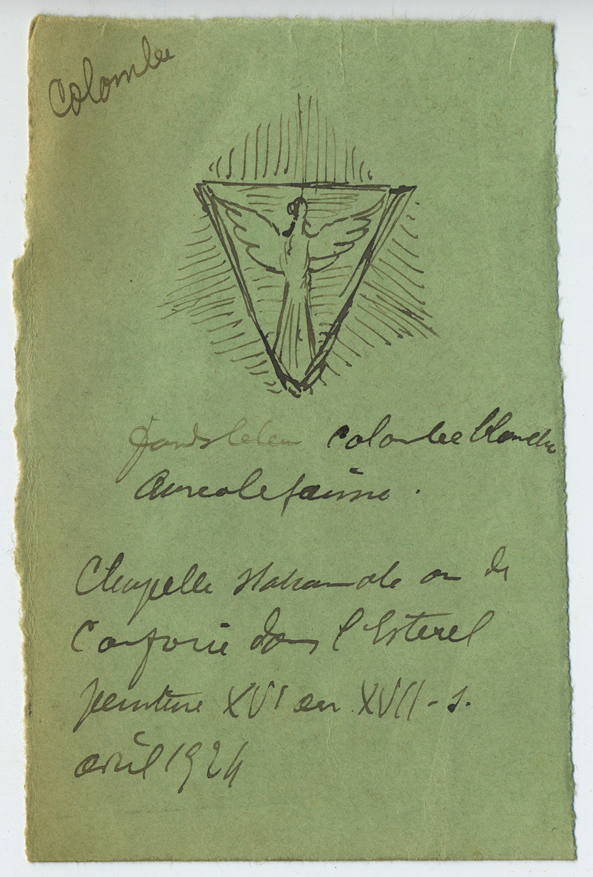 Colombe
fonds bleu colombe blanche
Aureole jaune.
Chapelle ou de
dans l'Esterel
peinture XVI ou XVII - s.
avril 1924